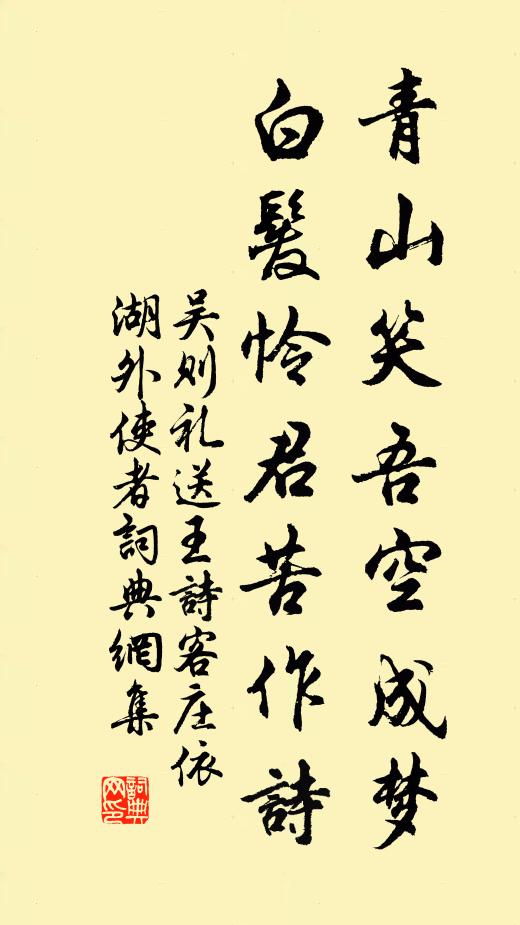 青山笑吾空成梦
白髮怜君苦作詩
吴则礼送王詩客庄依
湖外使者詞典網集
詞典网印